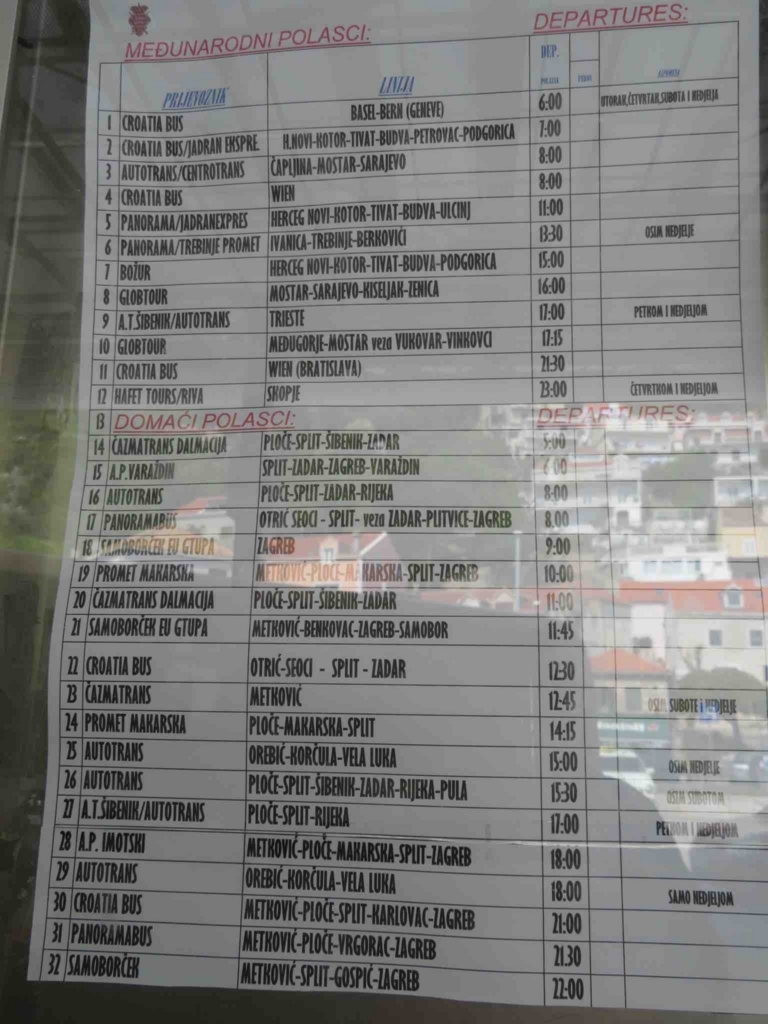 MEĐUNARODNI POLASCI: DEPARTURES:
PRIJEVOZNIK LINIJA DEP.
1 CROATIA BUS BASEL-BERN (GENEVE) 6:00 UTORAK,ČETVRTAK,SUBOTA I NEDJELJA
2 CROATIA BUS/JADRAN EKSPRE. H.NOVI-KOTOR-TIVAT-BUDVA-PETROVAC-PODGORICA 7:00
3 AUTOTRANS/CENTROTRANS ČAPLJINA-MOSTAR-SARAJEVO 8:00
4 CROATIA BUS WIEN 8:00
5 PANORAMA/JADRANEXPRES HERCEG NOVI-KOTOR-TIVAT-BUDVA-ULCINJ 11:00
6 PANORAMA/TREBINJE PROMET IVANICA-TREBINJE-BERKOVIĆI 13:30 OSIM NEDJELJE
7 BOŽUR HERCEG NOVI-KOTOR-TIVAT-BUDVA-PODGORICA 15:00
8 GLOBTOUR MOSTAR-SARAJEVO-KISELJAK-ZENICA 16:00
9 A.T.ŠIBENIK/AUTOTRANS TRIESTE 17:00 PETKOM I NEDJELJOM
10 GLOBTOUR MEĐUGORJE-MOSTAR veza VUKOVAR-VINKOVCI 17:15
11 CROATIA BUS WIEN (BRATISLAVA) 21:30
12 HAFET TOURS/RIVA SKOPJE 23:00 ČETVRTKOM I NEDJELJOM
13 DOMAĆI POLASCI: DEPARTURES:
14 ČAZMATRANS DALMACIJA PLOČE-SPLIT-ŠIBENIK-ZADAR 5:00
15 A.P.VARAŽDIN SPLIT-ZADAR-ZAGREB-VARAŽDIN
16 AUTOTRANS PLOČE-SPLIT-ZADAR-RIJEKA 8:00
17 PANORAMABUS OTRIĆ SEOCI - SPLIT- veza ZADAR-PLITVICE-ZAGREB 8.00
18 SAMOBORČEK EU GTUPA ZAGREB 9:00
19 PROMET MAKARSKA METKOVIĆ-PLOČE-MAKARSKA-SPLIT-ZAGREB 10:00
20 ČAZMATRANS DALMACIJA PLOČE-SPLIT-ŠIBENIK-ZADAR 11:00
21 SAMOBORČEK EU GTUPA METKOVIĆ-BENKOVAC-ZAGREB-SAMOBOR 11:45
22 CROATIA BUS OTRIĆ-SEOCI - SPLIT - ZADAR 12:30
23 ČAZMATRANS METKOVIĆ 12:45 OSIM SUBOTE i NEDJELJE
24 PROMET MAKARSKA PLOČE-MAKARSKA-SPLIT 14:15
25 AUTOTRANS OREBIĆ-KORČULA-VELA LUKA 15:00 OSIM NEDJELJE
26 AUTOTRANS PLOČE-SPLIT-ŠIBENIK-ZADAR-RIJEKA-PULA 15:30 OSIM SUBOTOM
27 A.T.ŠIBENIK/AUTOTRANS PLOČE-SPLIT-RIJEKA 17:00 PETKOM I NEDJELJOM
28 A.P. IMOTSKI METKOVIĆ-PLOČE-MAKARSKA-SPLIT-ZAGREB 18:00
29 AUTOTRANS OREBIĆ-KORČULA-VELA LUKA 18:00 SAMO NEDJELJOM
30 CROATIA BUS METKOVIĆ-PLOČE-SPLIT-KARLOVAC-ZAGREB 21:00
31 PANORAMABUS METKOVIĆ-PLOČE-VRGORAC-ZAGREB 21.30
32 SAMOBORČEK METKOVIĆ-SPLIT-GOSPIĆ-ZAGREB 22:00